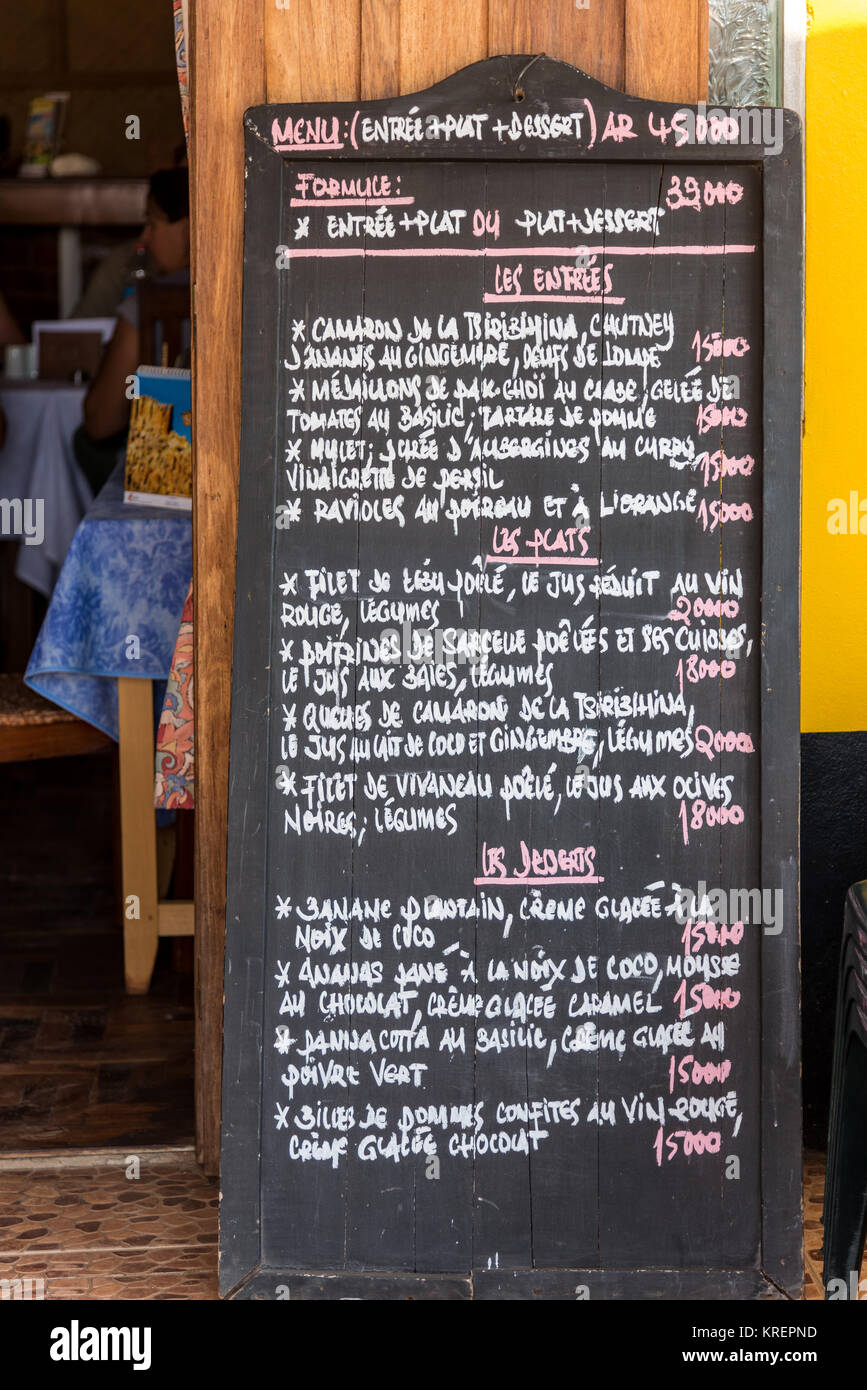 MENU: (ENTRÉE + PLAT + DESSERT) AR 45000
FORMULE: 39000
* ENTRÉE + PLAT OU PLAT + DESSERT
LES ENTRÉES
* CAMARON DE LA TSIRIBIHINA, CHUTNEY
D'ANANAS AU GINGEMBRE, OEUFS DE 15000
* MÉDAILLONS DE PAK-CHOÏ AU CRABE, GELÉE DE
TOMATES AU BASILIC, TARTARE DE POMME 15000
* MULET, PURÉE D'AUBERGINES AU CURRY,
VINAIGRETTE DE PERSIL 15000
* RAVIOLES AU POIREAU ET À L'ORANGE 15000
LES PLATS
* FILET DE ZÉBU POÊLÉ, LE JUS RÉDUIT AU VIN
ROUGE, LÉGUMES 20000
* POITRINES DE SARCELLE POÊLÉES ET SES CUISSES,
LE JUS AUX BAIES, LÉGUMES 18000
* QUEUES DE CAMARON DE LA TSIRIBIHINA,
LE JUS AU LAIT DE COCO ET GINGEMBRE, LÉGUMES 20000
* FILET DE VIVANEAU POÊLÉ, LE JUS AUX OLIVES
NOIRES, LÉGUMES 18000
LES DESSERTS
* BANANE PLANTAIN, CRÈME GLACÉE À LA
NOIX DE COCO 15000
* ANANAS PANÉ À LA NOIX DE COCO, MOUSSE
AU CHOCOLAT, CRÈME GLACÉE CARAMEL 15000
* PANNA COTTA AU BASILIC, CRÈME GLACÉE AU
POIVRE VERT 15000
* BILLES DE POMMES CONFITES AU VIN ROUGE,
CRÈME GLACÉE CHOCOLAT 15000
alamy
Image ID: KREPND
www.alamy.com